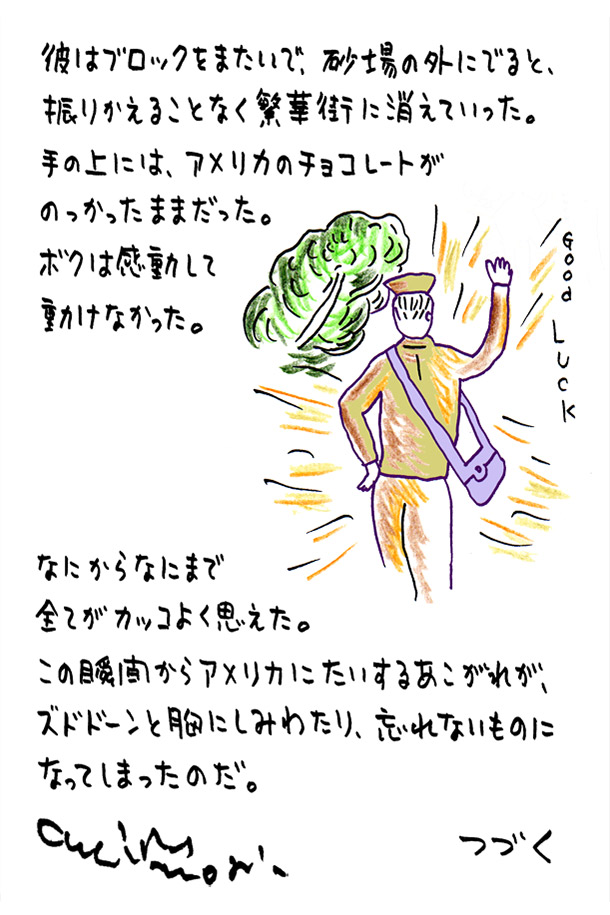 彼はブロックをまたいで、砂場の外にでると、
振りかえることなく繁華街に消えていった。
手の上には、アメリカのチョコレートが
のっかったままだった。
ボクは感動して
動けなかった。
GOOD LUCK
なにからなにまで
全てがカッコよく思えた。
この瞬間からアメリカにたいするあこがれが、
ズドドーンと胸にしみわたり、忘れないものに
なってしまったのだ。
つづく